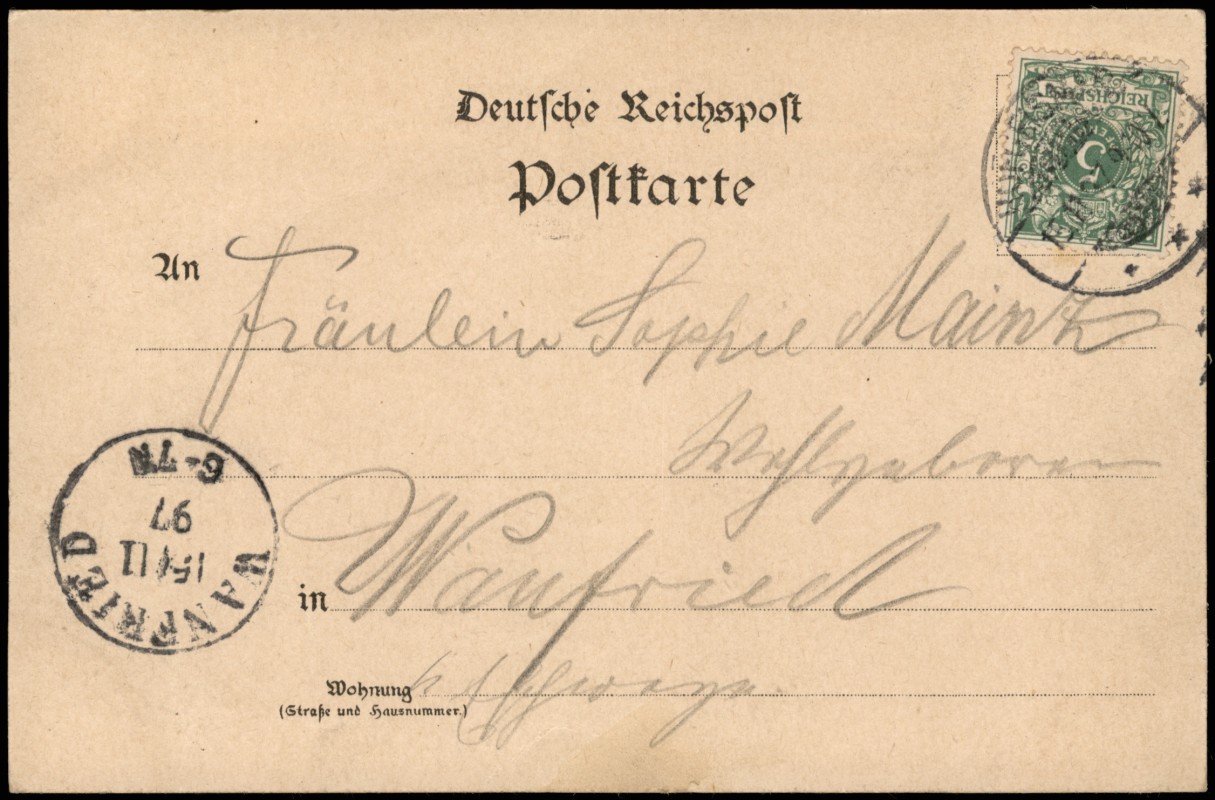 Deutsche Reichspost
Postkarte
REICHSPOST
5
An Fräulein Sophie Mainz
Wohlgeboren
in Wanfried
Wohnung b/Eschwege.
(Straße und Hausnummer.)
WANFRIED
15/11
97
6-7N